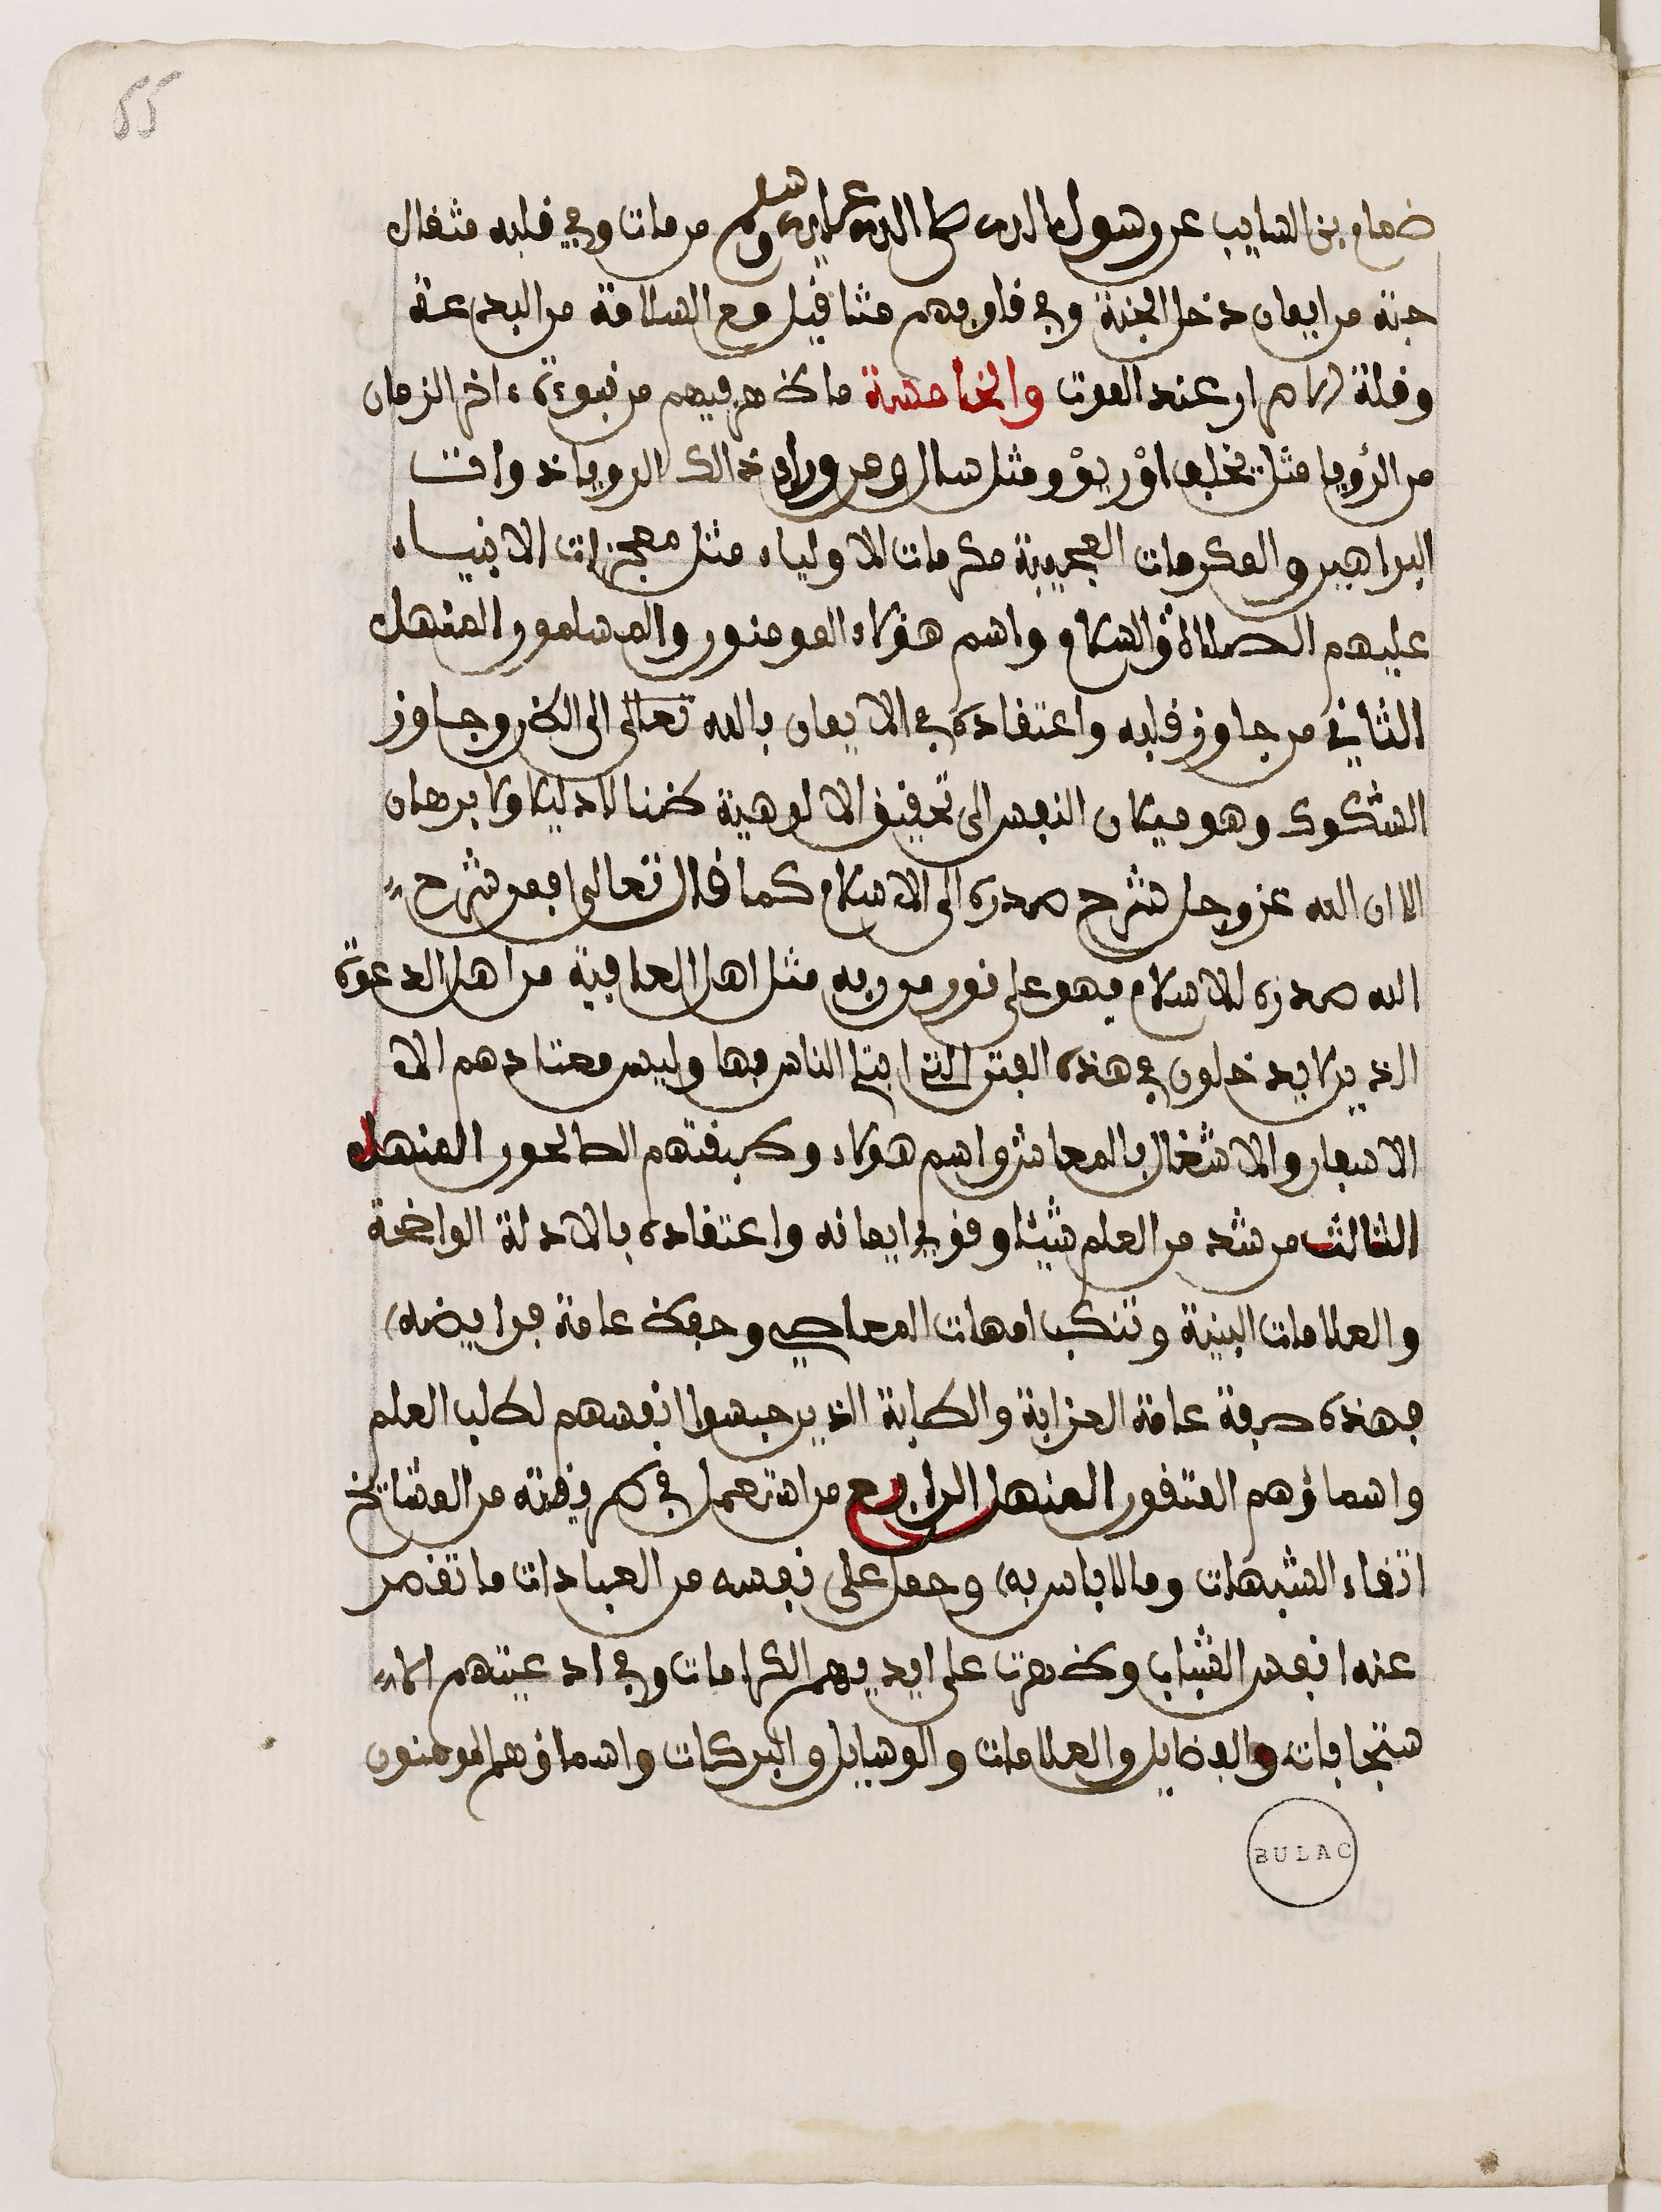 55
ضمام بن السايب عن رسول الله صلى الله عليه وسلم من مات وفي قلبه مثقال
حبة من ايمان دخل الجنة وفي قلوبهم مثاقيل مع السلامة من البدعة
وقلة الاصرار عند الموت والخامسة ما ظهر فيهم من نبوءة اخر الزمان
من الرؤيا مثل يخلف اوْريوْ ومثل ذالك الرويا ذوات
البراهين والمكرمات العجيبة مكرمات الاولياء مثل معجزات الانبياء
عليهم الصلاة والسلام واسم هؤلاء المومنون والمسلمون المنهل
الثاني من جاوز قلبه واعتقاده في الايمان بالله تعالى الى الظن وجاوز
الشكوك وهو ميلان النفس الى تحقيق الالوهية ظنا لا دليلا ولا برهان
الا ان الله عز وجل شرح صدره الى الاسلام كما قال تعالى افمن شرح
الله صدره للاسلام فهو على نور من ربه مثل اهل العافية من اهل الدعوة
الذين لا يدخلون في هذه الفتن التي ابتلي الناس بها وليس معتادهم الا
الاسفار والاشتغال بالمعاش واسم هؤلاء وطريقتهم الصالحون المنهل
الثالث من شد من العلم شيئا وقوي ايمانه واعتقاده بالادلة الواضحة
والعلامات البينة وتنكب امهات المعاصي وحفظ عامة فرايضه
فهذه صرفة عامة العزابة والطلبة الذين حبسوا انفسهم لطلب العلم
واسماؤهم المتقون المنهل الرابع من استعمل في طريقته من المشايخ
اتقاء الشبهات وما لا باس به وحمل على نفسه من العبادات ما تقصر
عنه انفس الشباب وظهرت على ايديهم الكرامات وفي ادعيتهم الا
ستجابات والفضايل والعلامات والوسايل والبركات واسماؤهم المومنون
BULAC